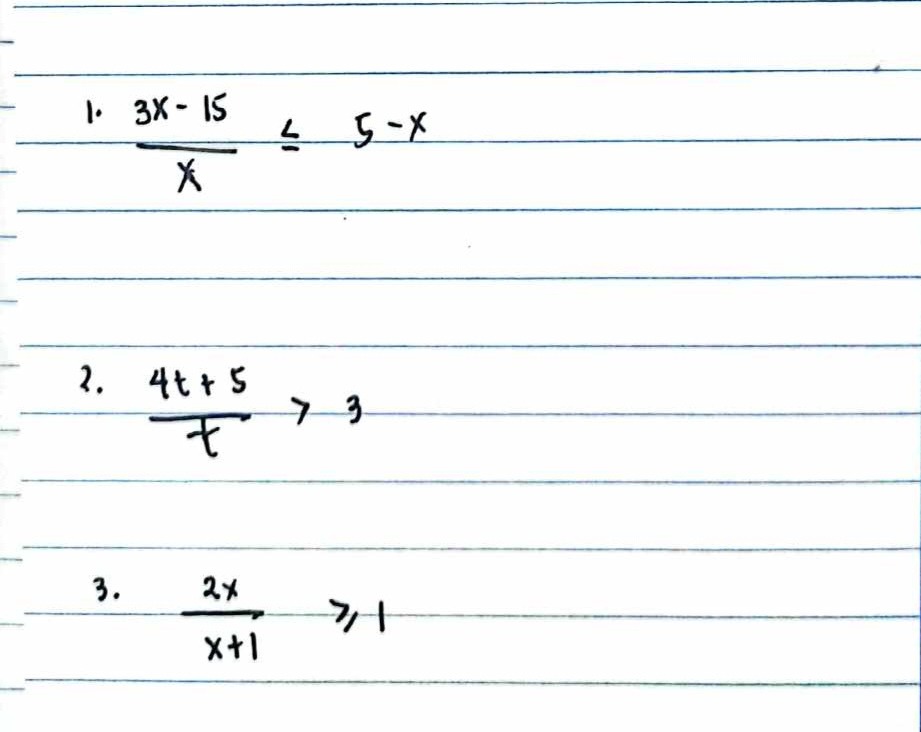 1. 3x - 15 / x ≤ 5 - x
2. 4t + 5 / t > 3
3. 2x / x+1 ⩾ 1